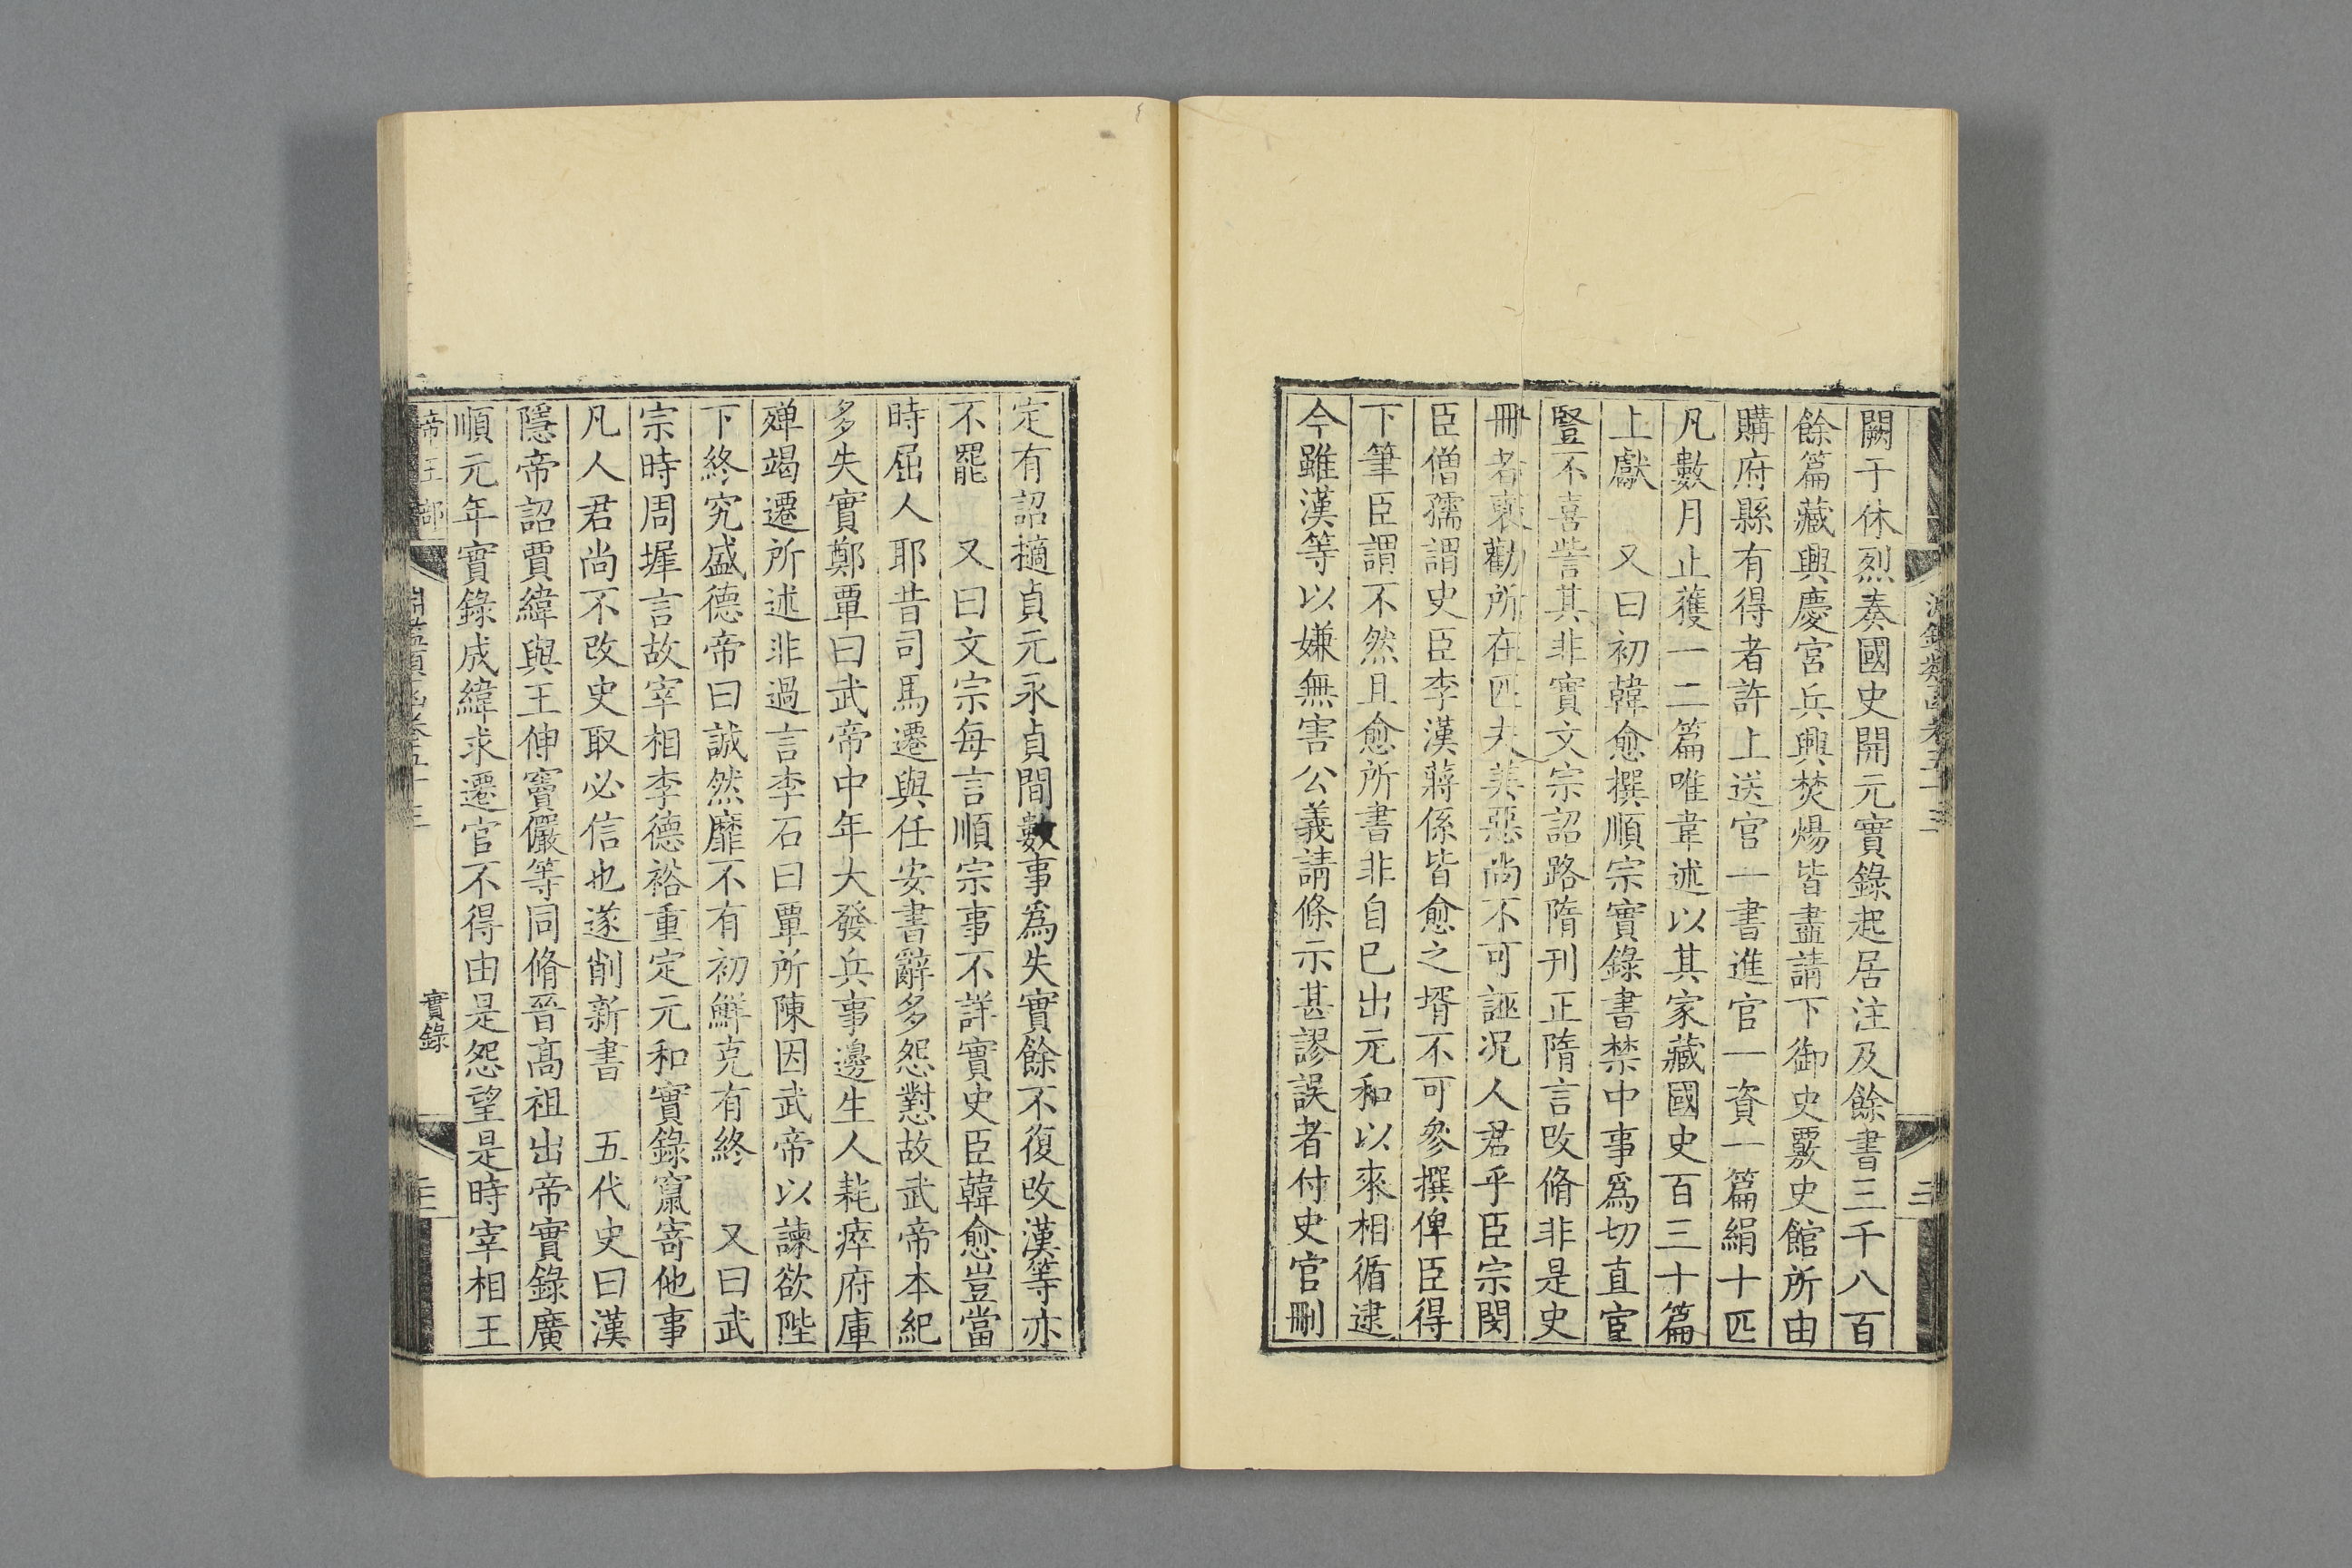 闕于休烈奏國史開元實錄起居注及餘書三千八百
餘篇藏興慶宮兵興焚煬皆盡請下御史覈史館所由
購府縣有得者許上送官一書進官一資一篇絹十匹
凡數月止獲一二篇唯韋述以其家藏國史百三十篇
上獻　又曰初韓愈撰順宗實錄書禁中事爲切直宦
豎不喜訾其非實文宗詔路隋刊正隋言改脩非是史
冊者褒勸所在匹夫美惡尚不可誣況人君乎臣宗閔
臣僧孺謂史臣李漢蔣係皆愈之壻不可參撰俾臣得
下筆臣謂不然且愈所書非自已出元和以來相循逮
今雖漢等以嫌無害公義請條示甚謬誤者付史官刪
定有詔擿貞元永貞間數事爲失實餘不復改漢等亦
不罷　又曰文宗每言順宗事不詳實史臣韓愈豈當
時屈人耶昔司馬遷與任安書辭多怨懟故武帝本紀
多失實鄭覃曰武帝中年大發兵事邊生人耗瘁府庫
殫竭遷所述非過言李石曰覃所陳因武帝以諫欲陛
下終究盛德帝曰誠然靡不有初鮮克有終　又曰武
宗時周墀言故宰相李德裕重定元和實錄竄寄他事
凡人君尚不改史取必信也遂削新書　五代史曰漢
隱帝詔賈緯與王伸竇儼等同脩晉高祖出帝實錄廣
順元年實錄成緯求遷官不得由是怨望是時宰相王
帝王部
實錄